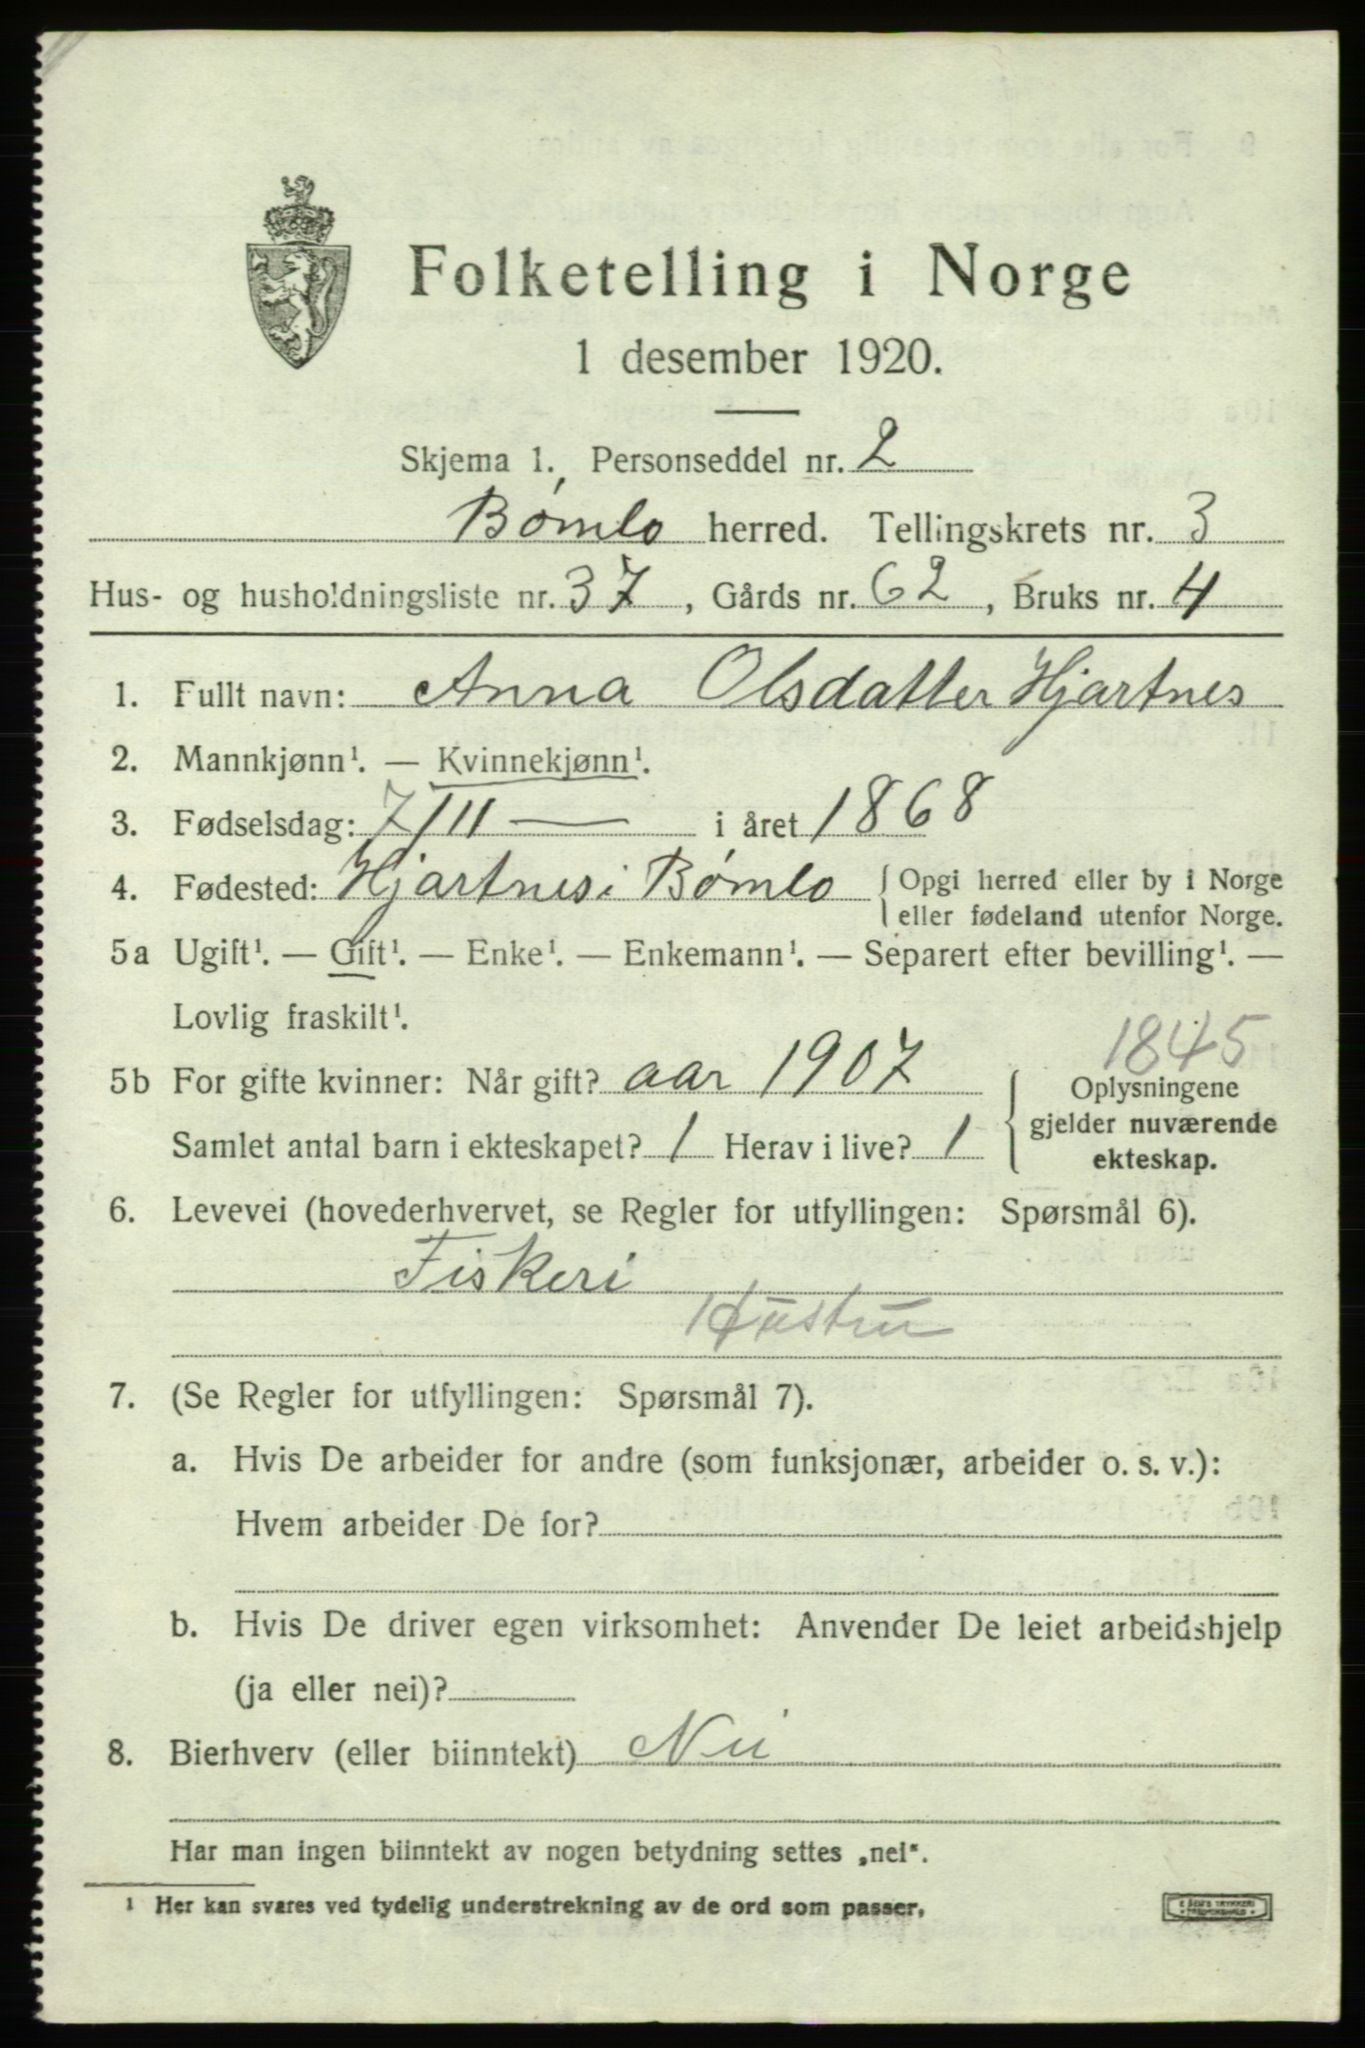 Folketelling i Norge
1 desember 1920.
Skjema 1. Personseddel nr. 2
Bømlo herred. Tellingskrets nr. 3
Hus- og husholdningsliste nr. 37, Gårds nr. 62, Bruks nr. 4
1. Fullt navn: Anna Olsdatter Hjartnes
2. Mannkjønn¹. — Kvinnekjønn¹.
3. Fødselsdag: 7/11 — i året 1868
4. Fødested: Hjartnes i Bømlo { Opgi herred eller by i Norge
eller fødeland utenfor Norge.
5a Ugift¹. — Gift¹. — Enke¹. — Enkemann¹. — Separert efter bevilling¹. —
Lovlig fraskilt¹.
1845
5b For gifte kvinner: Når gift? aar 1907
Samlet antal barn i ekteskapet? 1 Herav i live? 1
Oplysningene
gjelder nuværende
ekteskap.
6. Levevei (hovederhvervet, se Regler for utfyllingen: Spørsmål 6).
Fiskeri
Hustru
7. (Se Regler for utfyllingen: Spørsmål 7).
a. Hvis De arbeider for andre (som funksjonær, arbeider o. s. v.):
Hvem arbeider De for?
b. Hvis De driver egen virksomhet: Anvender De leiet arbeidshjelp
(ja eller nei)?
8. Bierhverv (eller biinntekt) Nei
Har man ingen biinntekt av nogen betydning settes „nei“.
¹ Her kan svares ved tydelig understrekning av de ord som passer.